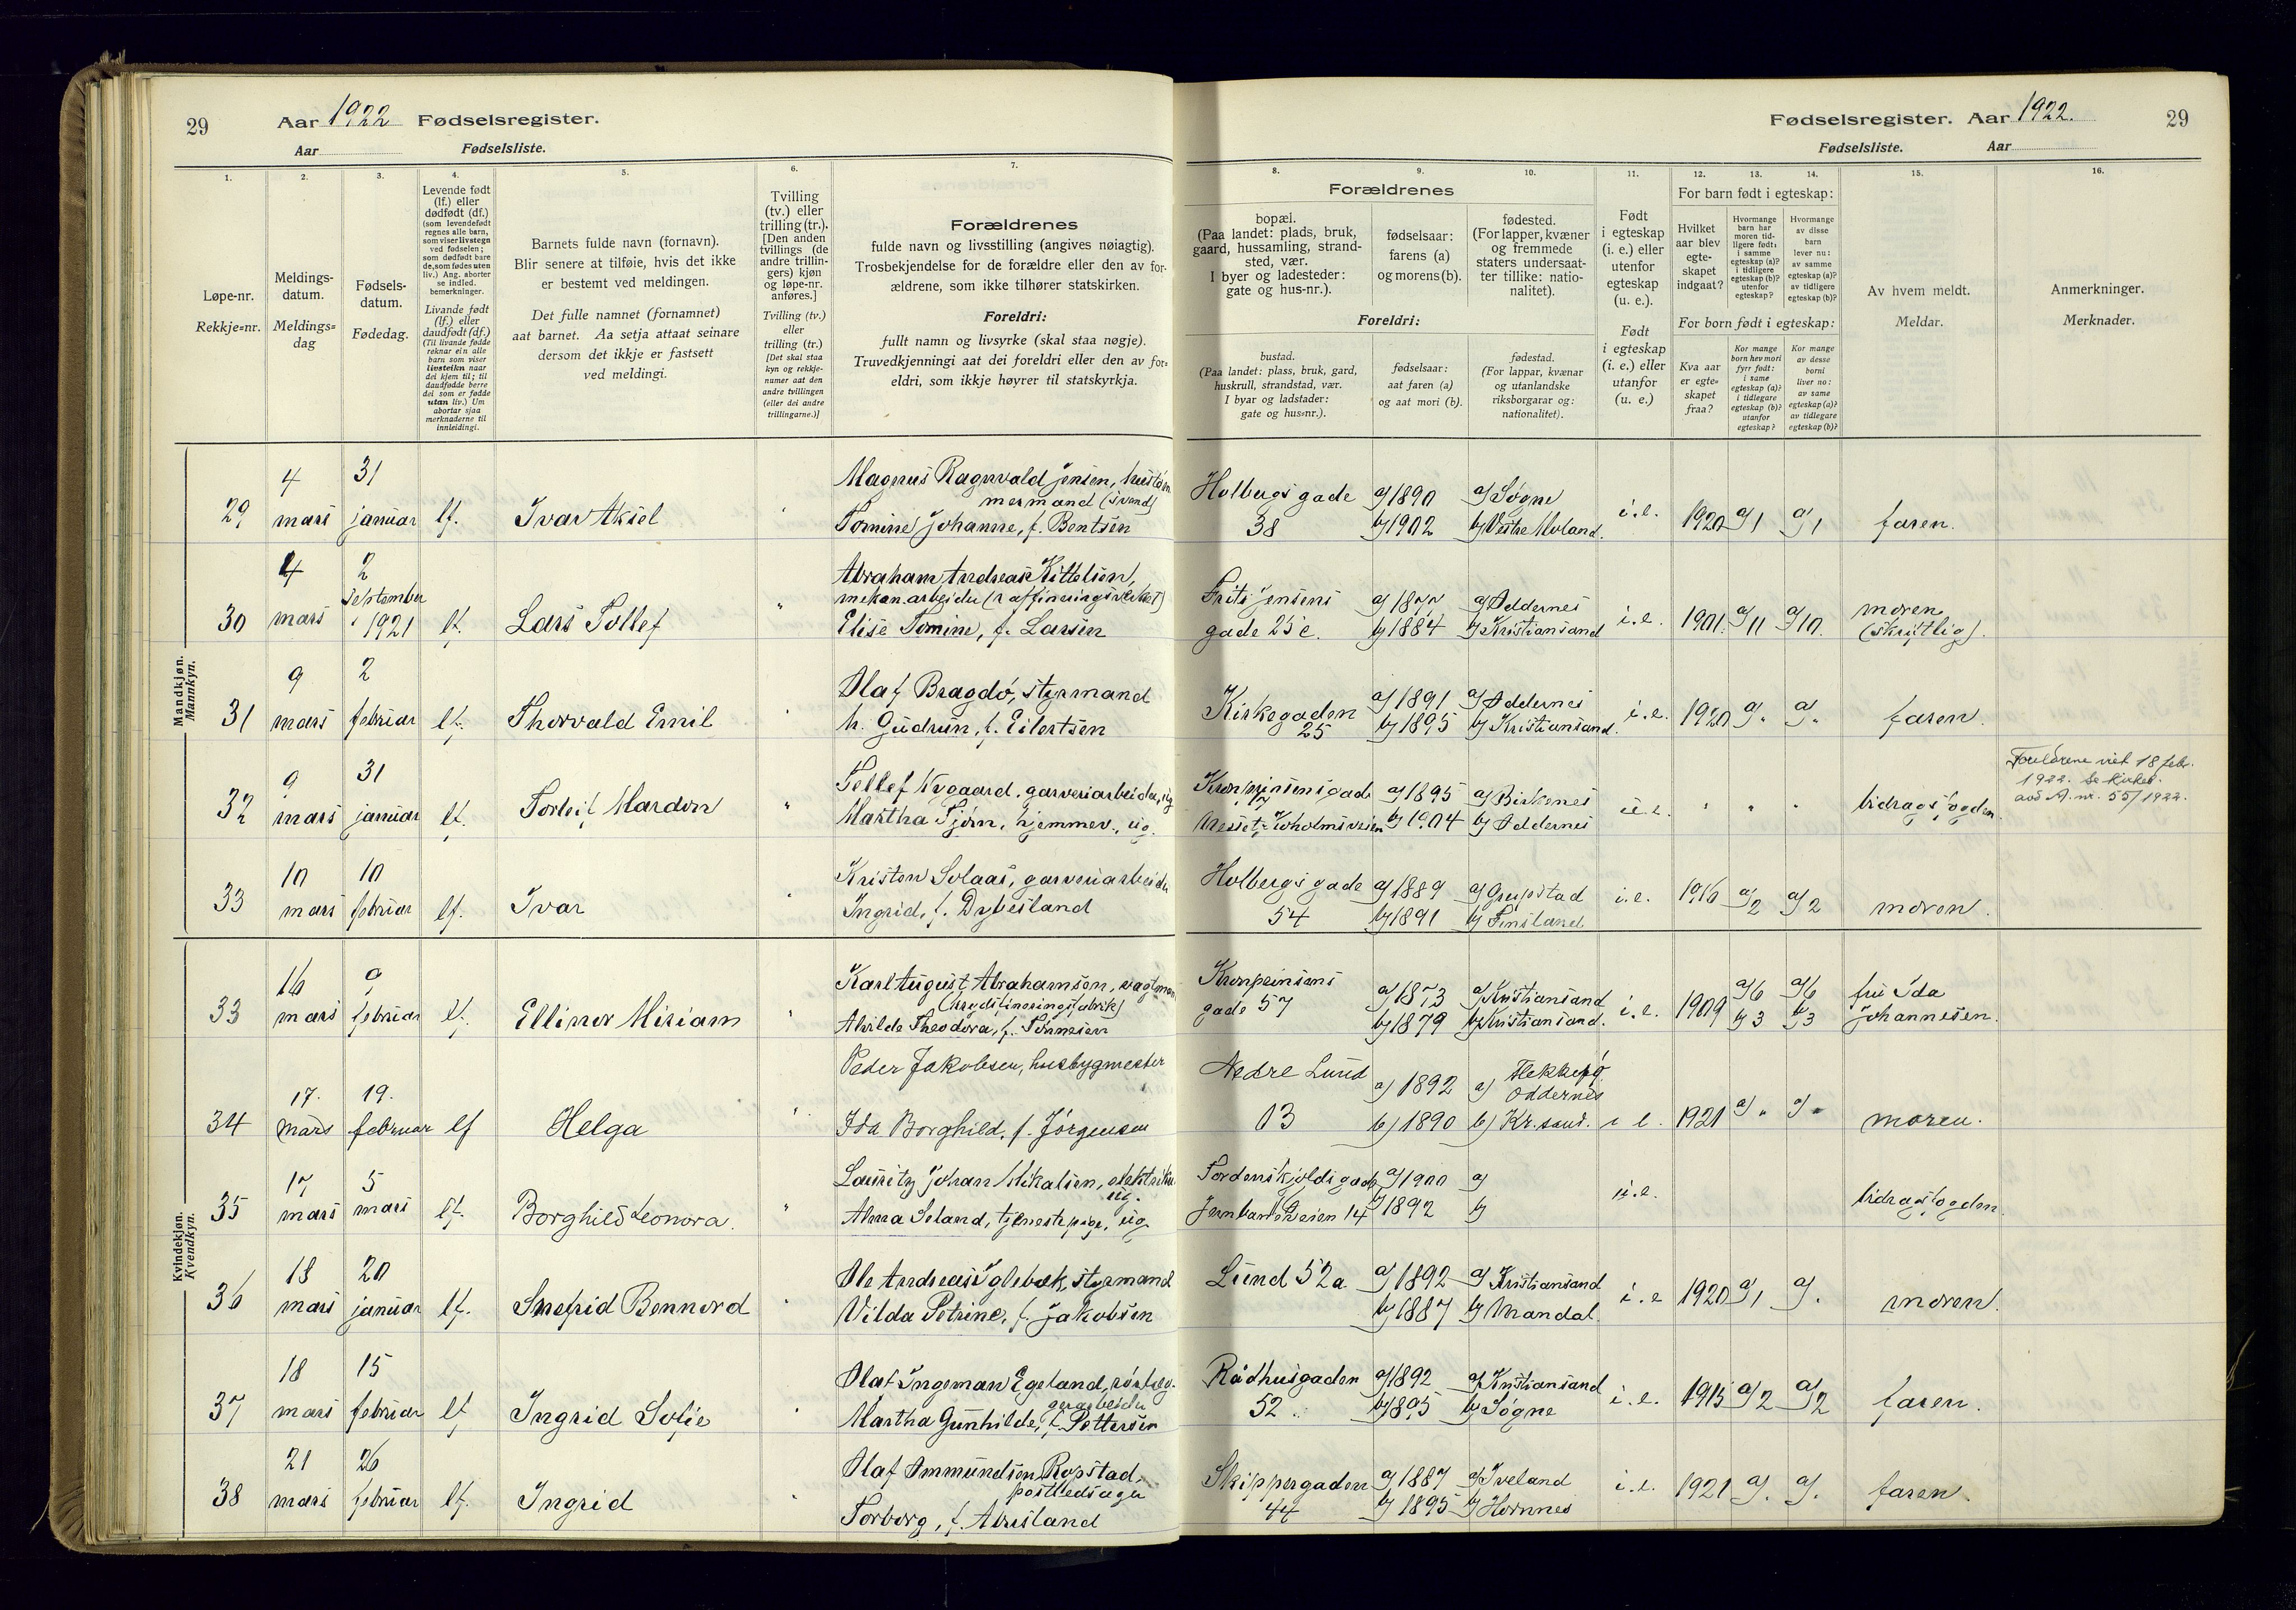 29
Aar 1922 Fødselsregister.
Aar
Fødselsliste.
1.
2.
3.
4.
5.
6.
7.
Løpe-nr.
Rekkje-nr.
Meldings-
datum.
Meldings-
dag
Fødsels-
datum.
Fødedag.
Levende født
(lf.) eller
dødfødt (df.)
(som levendefødt
regnes alle barn,
som viser livstegn
ved fødselen;
som dødfødt bare
de, som fødes uten
liv.) Ang. aborter
se indled.
bemerkninger.
Livande født
(lf.) eller
daudfødt (df.)
(Til livande fødde
reknar ein alle
barn som viser
livsteikn naar
dei kjem til; til
daudfødde berre
dei som er fødde
utan liv.) Um
abortar sjaa
merknaderne til
innleidingi.
Barnets fulde navn (fornavn).
Blir senere at tilføie, hvis det ikke
er bestemt ved meldingen.
Det fulle namnet (fornamnet)
aat barnet. Aa setja attaat seinare
dersom det ikkje er fastsett
ved meldingi.
Tvilling
(tv.) eller
trilling (tr.).
[Den anden
tvillings (de
andre trillin-
gers) kjøn
og løpe-nr.
anføres.]
Tvilling (tv.)
eller
trilling (tr.)
[Det skal staa
kyn og rekkje-
numer aat den
andre tvillingen
(eller dei andre
trillingarne.)]
Forældrenes
fulde navn og livsstilling (angives nøiagtig).
Trosbekjendelse for de forældre eller den av for-
ældrene, som ikke tilhører statskirken.
Foreldri:
fullt namn og livsyrke (skal staa nøgje).
Truvedkjenningi aat dei foreldri eller den av for-
eldri, som ikkje høyrer til statskyrkja.
Fødselsregister. Aar 1922.
29
Fødselsliste.
Aar
8.
9.
10.
11.
12.
13.
14.
15.
16.
Forældrenes
bopæl.
(Paa landet: plads, bruk,
gaard, hussamling, strand-
sted, vær.
I byer og ladesteder:
gate og hus-nr.).
fødselsaar:
farens (a)
og morens (b).
fødested.
(For lapper, kvæner
og fremmede
staters undersaat-
ter tillike: natio-
nalitet).
Foreldri:
bustad.
(Paa landet: plass, bruk, gard,
huskrull, strandstad, vær.
I byar og ladstader:
gate og hus-nr.).
fødselsaar:
aat faren (a)
og aat mori (b).
fødestad.
(For lappar, kvænar
og utanlandske
riksborgarar og:
nationalitet).
Født
i egteskap
(i. e.) eller
utenfor
egteskap
(u. e.).
Født
i egteskap
(i. e.) eller
utanfor
(u. e.)
For barn født i egteskap:
Hvilket
aar blev
egte-
skapet
indgaat?
Hvormange
barn har
moren tid-
ligere født:
i samme
egteskap (a)?
i tidligere
egteskap (b)?
utenfor
egteskap?
Hvormange
av disse
barn
lever nu:
av samme
egteskap (a)?
av tidligere
egteskap (b)?
For born født i egteskap:
Kva aar
er egte-
skapet
fraa?
Kor mange
born hev mori
fyrr født:
i same
egteskap (a)?
i tidlegare
egteskap (b)?
utanfor
egteskap?
Kor mange
av desse
borni
liver no:
av same
egteskap (a)?
av tidlegare
egteskap (b)?
Av hvem meldt.
Meldar.
Anmerkninger.
Merknader.
Mandkjøn.
Mannkyn.
29 4 mars 31 januar lf. Ivar Aksel
Magnus Ragnvald Jensen,
mermand (svend)
Tomine Johanne, f. Bentsen
Holbergs gade 38
a) 1890 b) 1902
a) Søgne b) Vestre Moland.
i.e. 1920 a) 1 a) 1 faren.
30 4 mars 2 september 1921 lf. Lars Tollef
Abraham Andreas Kittelsen,
mekan. arbeider (raffineringsverket)
Elise Tomine, f. Larsen
Frits Jensens gade 25 c.
a) 1877 b) 1884
a) Oddernes b) Kristiansand
i.e. 1901. a) 11 a) 10. moren (skriftlig).
31 9 mars 2 februar lf. Thorvald Emil
Olaf Bragdø, styrmand
h. Gudrun, f. Eilertsen
Kirkegaden 25
a) 1891 b) 1895
a) Oddernes b) Kristiansand.
i.e. 1920 a) " a) " faren.
32 9 mars 31 januar lf. Torleif Mardon
Tellef Nygaard, garveriarbeider, ug
Martha Tjørn, hjemmev., ug.
Kronprinsensgade
a) 1895 b) 1904
a) Birkenes b) Oddernes
u.e. " " " bidragsfogden
Foreldrene viet 18 febr.
1922. Se kirkeb.
avd A. nr. 55/1922.
33 10 mars 10 februar lf. Ivar
Kristen Solaas, garveriarbeider
Ingrid, f. Dybesland
Holbergs gade 54
a) 1889 b) 1891
a) Greipstad b) Finsland
i.e. 1916 a) 2 a) 2 moren.
Kvindekjøn.
Kvendkyn.
33 16 mars 9 februar lf. Ellinor Miriam
Karl August Abrahamsen, vagtman
Alvilde Theodora, f. Tønnesen
Kronprinsens gade 57
a) 1873 b) 1879
a) Kristiansand b) Kristiansand.
i.e. 1909 a) 6 b) 3 a) 6 b) 3 fru Ida Johannesen.
34 17. mars 19. februar lf Helga
Peder Jakobsen, husbygmester
Ida Borghild, f. Jørgensen
Nedre Lund 13
a) 1892 b) 1890
a) Flekkerø Oddernes b) Kr.sand.
i e. 1921 a) " a) " moren.
35 17 mars 5 mars lf. Borghild Leonora.
Lauritz Johan Mikalsen, elektriker ug.
Alma Seland, tjenestepige, ug
Tordenskjolds gade
Jernbaneveien 14
a) 1900 b) 1892
a)
b)
u.e. bidragsfogden.
36 18 mars 20 januar lf. Snefrid Bennord
Ole Andreas Iglebæk, styrmand
Vilda Petrine, f. Jakobsen
Lund 52a
a) 1892 b) 1887
a) Kristiansand b) Mandal.
i.e 1920 a) 1 a) . moren.
37 18 mars 15 februar lf Ingrid Sofie
Olaf Ingeman Egeland, rørlæg-
gerarbeider
Martha Gunhilde, f. Pettersen
Rådhusgaden 52
a) 1892 b) 1895
a) Kristiansand b) Søgne
i.e. 1915 a) 2 a) 2 faren.
38 21 mars 26 februar lf. Ingrid
Olaf Ommundsen Ropstad,
postledsager
Torborg, f. Abusland
Skippergaden 44
a) 1887 b) 1895
a) Iveland b) Hornnes
i.e. 1921 a) . a) . faren.